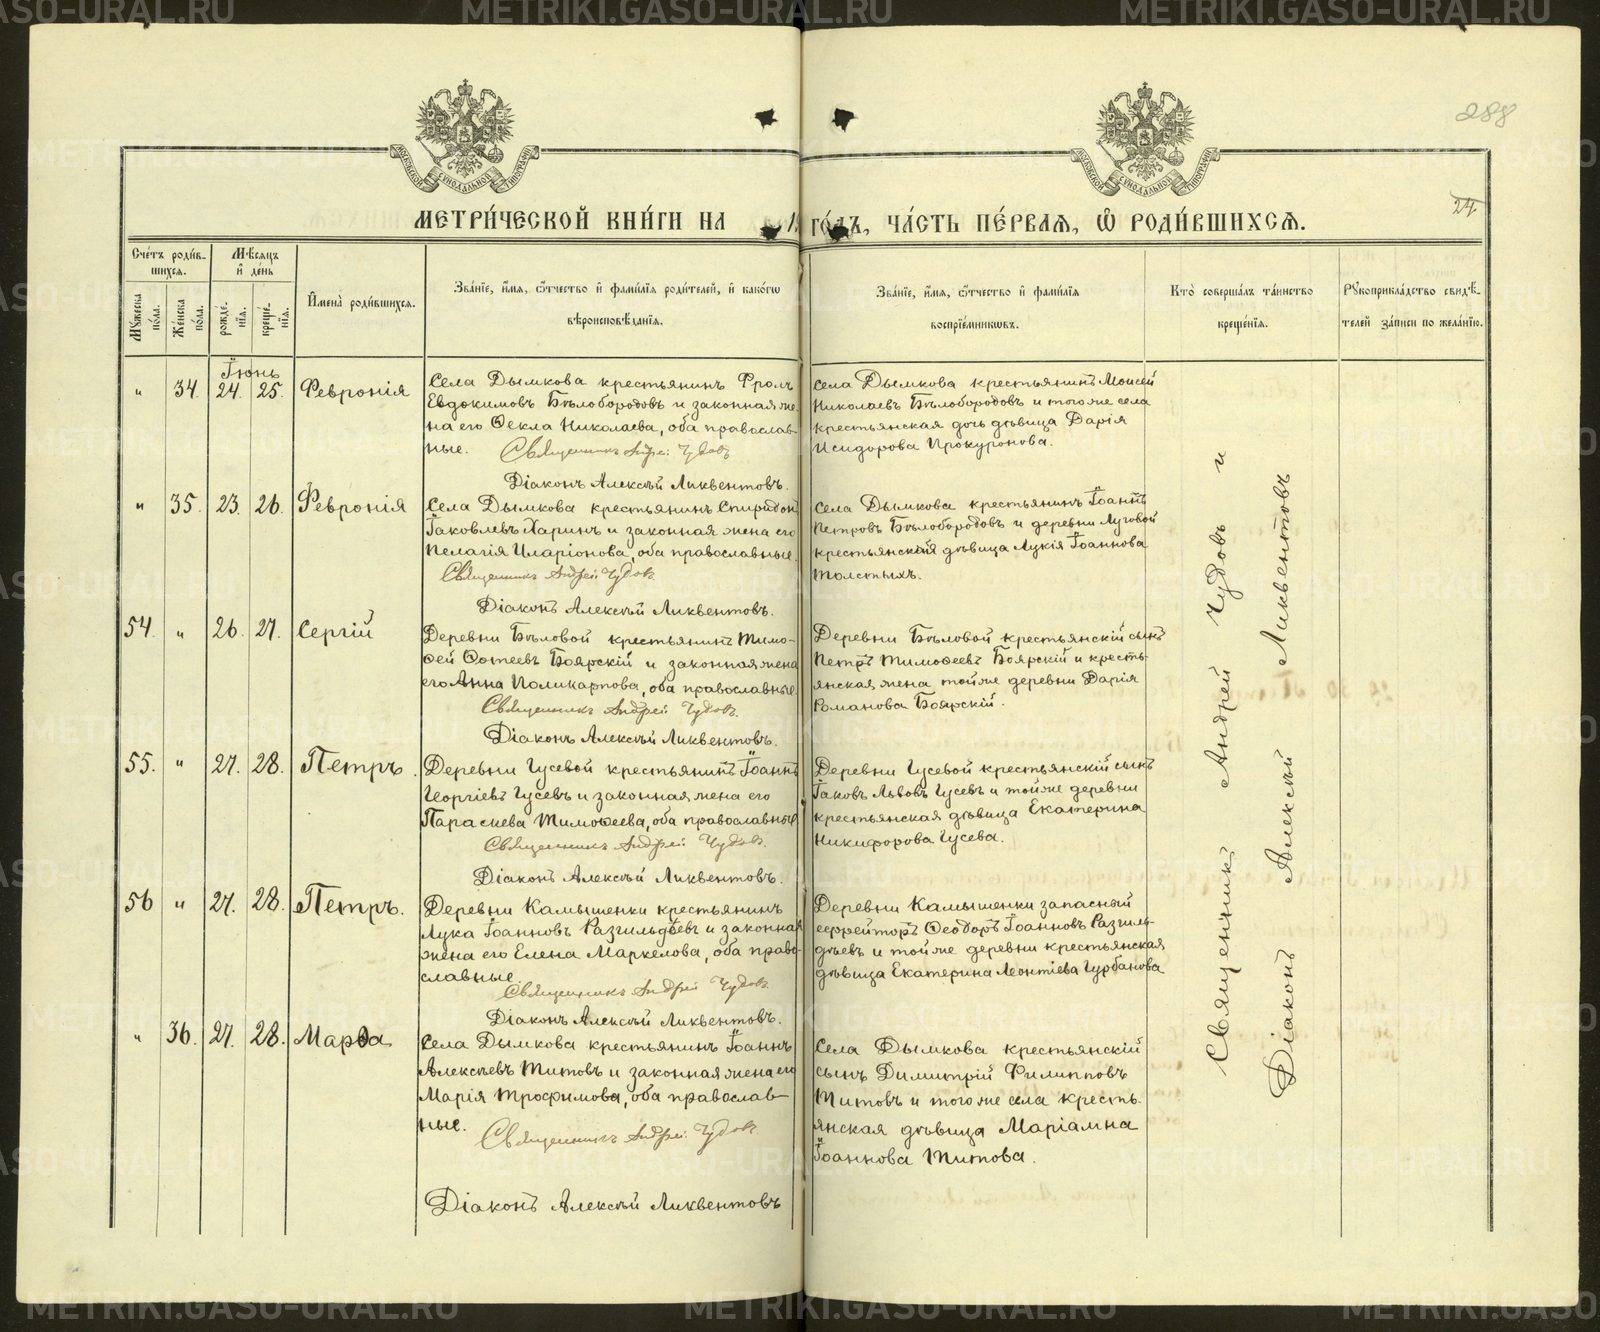 METRIKI.GASO-URAL.RU
288
МОСКОВСКОЙ СѴНОДАЛЬНОЙ ТИПОГРАФІИ
МОСКОВСКОЙ СѴНОДАЛЬНОЙ ТИПОГРАФІИ
24
МЕТРИ́ЧЕСКОЙ КНИ́ГИ НА 1 ГО́ДЪ, ЧА́СТЬ ПЕ́РВАЯ, Ѿ РОДИ́ВШИХСѦ.
Сче́тъ роди́в-
шихсѧ.
Мꙋ́жеска
по́ла.
Же́нска
по́ла.
Мѣ́сѧцъ
и҆ де́нь
рожде́-
нїѧ.
креще́-
нїѧ.
И҆мена̀ роди́вшихсѧ.
Зва́нїе, и҆́мѧ, ѻ҆́тчество и҆ фами́лїѧ роди́телей, и҆ како́гѡ
вѣроисповѣ́данїѧ.
Зва́нїе, и҆́мѧ, ѻ҆́тчество и҆ фами́лїѧ
воспрїе́мникѡвъ.
Кто̀ соверша́лъ та́инство
креще́нїѧ.
Рꙋкоприкла́дство свидѣ́-
телей за́писи по жела́нїю.
Іюнь
" 34. 24. 25. Февронія
Села Дымкова крестьянинъ Фролъ
Евдокимовъ Бѣлобородовъ и законная же-
на его Ѳекла Николаева, оба православ-
ные. Священникъ Андрей Чудовъ
Діаконъ Алексѣй Ликвентовъ.
Села Дымкова крестьянинъ Моисей
Николаевъ Бѣлобородовъ и того же села
крестьянская дочь дѣвица Дарія
Исидорова Прокуронова.
" 35. 23. 26. Февронія
Села Дымкова крестьянинъ Спиридонъ
Іаковлевъ Харинъ и законная жена его
Пелагія Иларіонова, оба православные.
Священникъ Андрей Чудовъ
Діаконъ Алексѣй Ликвентовъ.
Села Дымкова крестьянинъ Іоаннъ
Петровъ Бѣлобородовъ и деревни Луговой
крестьянская дѣвица Лукія Іоаннова
Толстыхъ.
54. " 26. 27. Сергій
Деревни Бѣловой крестьянинъ Тимо-
ѳей Ѳотеевъ Боярскій и законная жена
его Анна Поликарпова, оба православные.
Священникъ Андрей Чудовъ.
Діаконъ Алексѣй Ликвентовъ.
Деревни Бѣловой крестьянскій сынъ
Петръ Тимоѳеевъ Боярскій и кресть-
янская жена той же деревни Дарія
Романова Боярскій.
55. " 27. 28. Петръ.
Деревни Гусевой крестьянинъ Іоаннъ
Георгіевъ Гусевъ и законная жена его
Параскева Тимоѳеева, оба православные.
Священникъ Андрей Чудовъ.
Діаконъ Алексѣй Ликвентовъ.
Деревни Гусевой крестьянскій сынъ
Іаковъ Львовъ Гусевъ и той же деревни
крестьянская дѣвица Екатерина
Никифорова Гусева.
56 " 27. 28. Петръ.
Деревни Камышенки крестьянинъ
Лука Іоанновъ Разгильдѣевъ и законная
жена его Елена Маркелова, оба право-
славные
Священникъ Андрей Чудовъ
Діаконъ Алексѣй Ликвентовъ.
Деревни Камышенки запасный
ефрейторъ Ѳеодоръ Іоанновъ Разгиль-
дѣевъ и той же деревни крестьянская
дѣвица Екатерина Леонтіева Гурбанова
" 36. 27. 28. Марѳа
Села Дымкова крестьянинъ Іоаннъ
Алексѣевъ Титовъ и законная жена его
Марія Трофимова, оба православ-
ные.
Священникъ Андрей Чудовъ.
Діаконъ Алексѣй Ликвентовъ
Села Дымкова крестьянскій
сынъ Димитрій Филипповъ
Титовъ и того же села кресть-
янская дѣвица Маріамна
Іоаннова Титова.
Священникъ Андрей Чудовъ и
Діаконъ Алексѣй Ликвентовъ